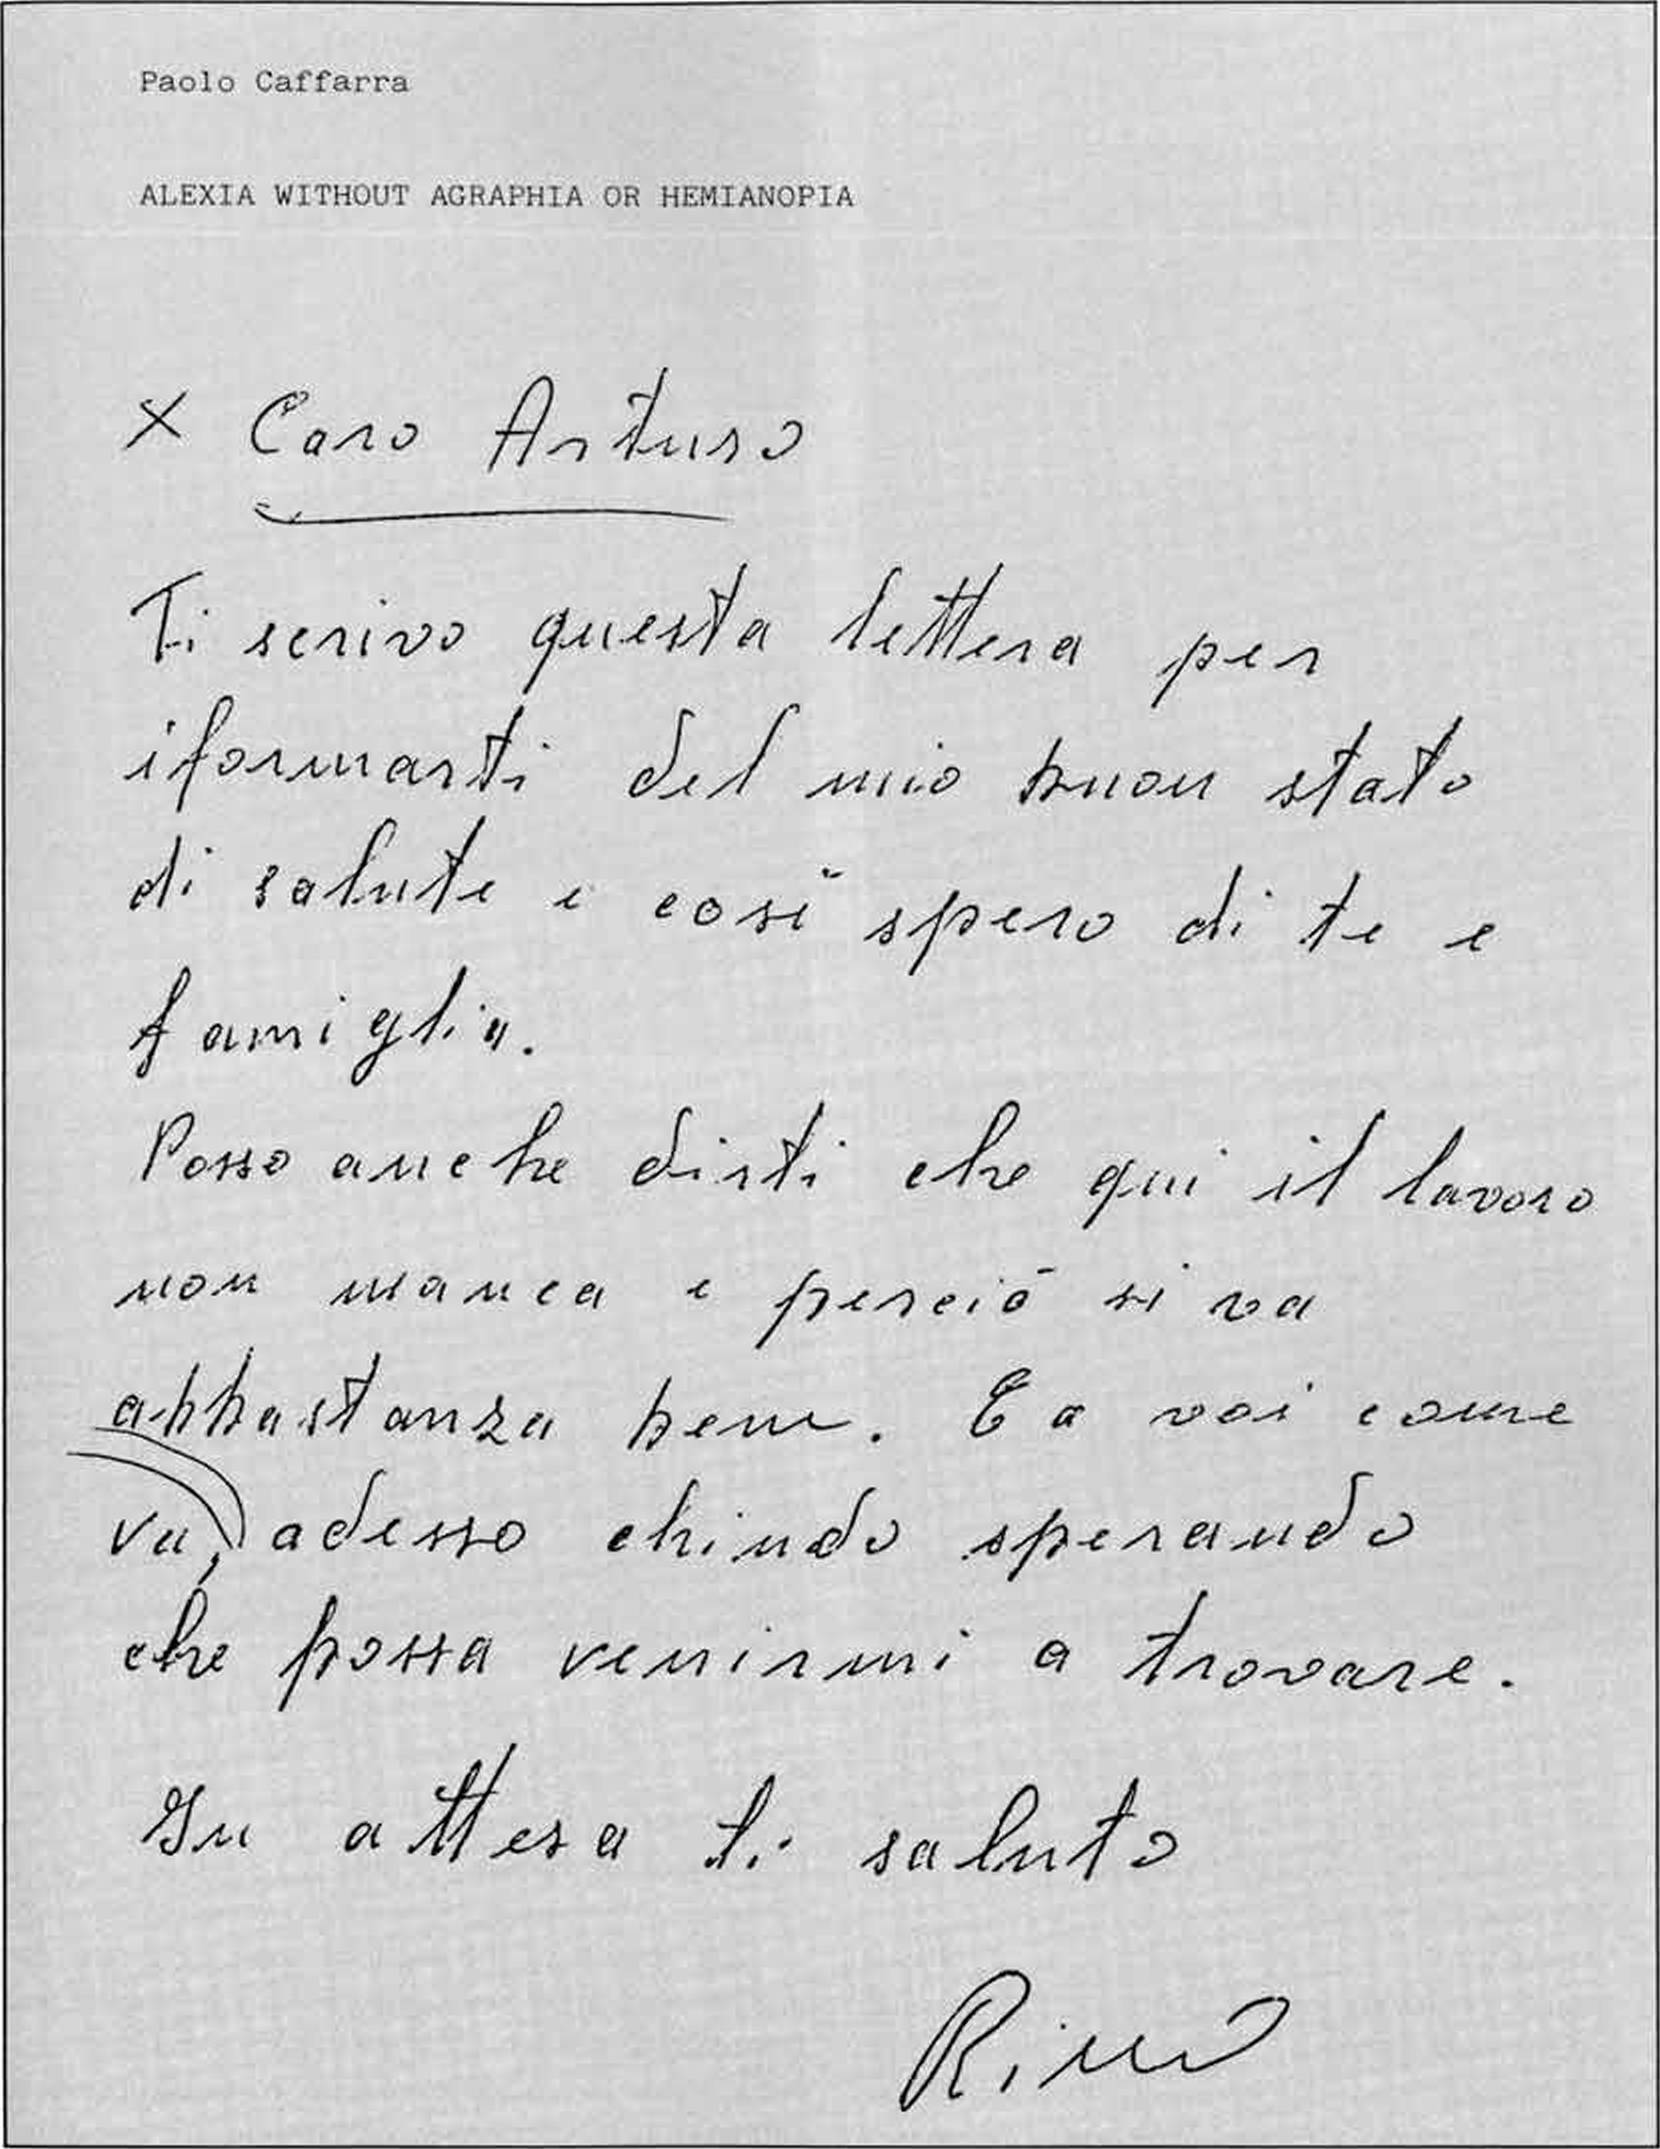 Paolo Caffarra
ALEXIA WITHOUT AGRAPHIA OR HEMIANOPIA
x Caro Arturo
Ti scrivo questa lettera per
iformarti del mio buon stato
di salute e così spero di te e
famiglia.
Posso anche dirti che qui il lavoro
non manca e perciò si va
abbastanza bene. E a voi come
va, adesso chiudo sperando
che possa venirmi a trovare.
In attesa ti saluto
Rino